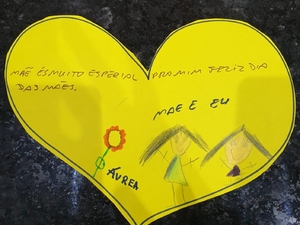 MÃE ÉS MUITO ESPECIAL PRA MIM FELIZ DIA
DAS MÃES.
MAE E EU
ÁUREA